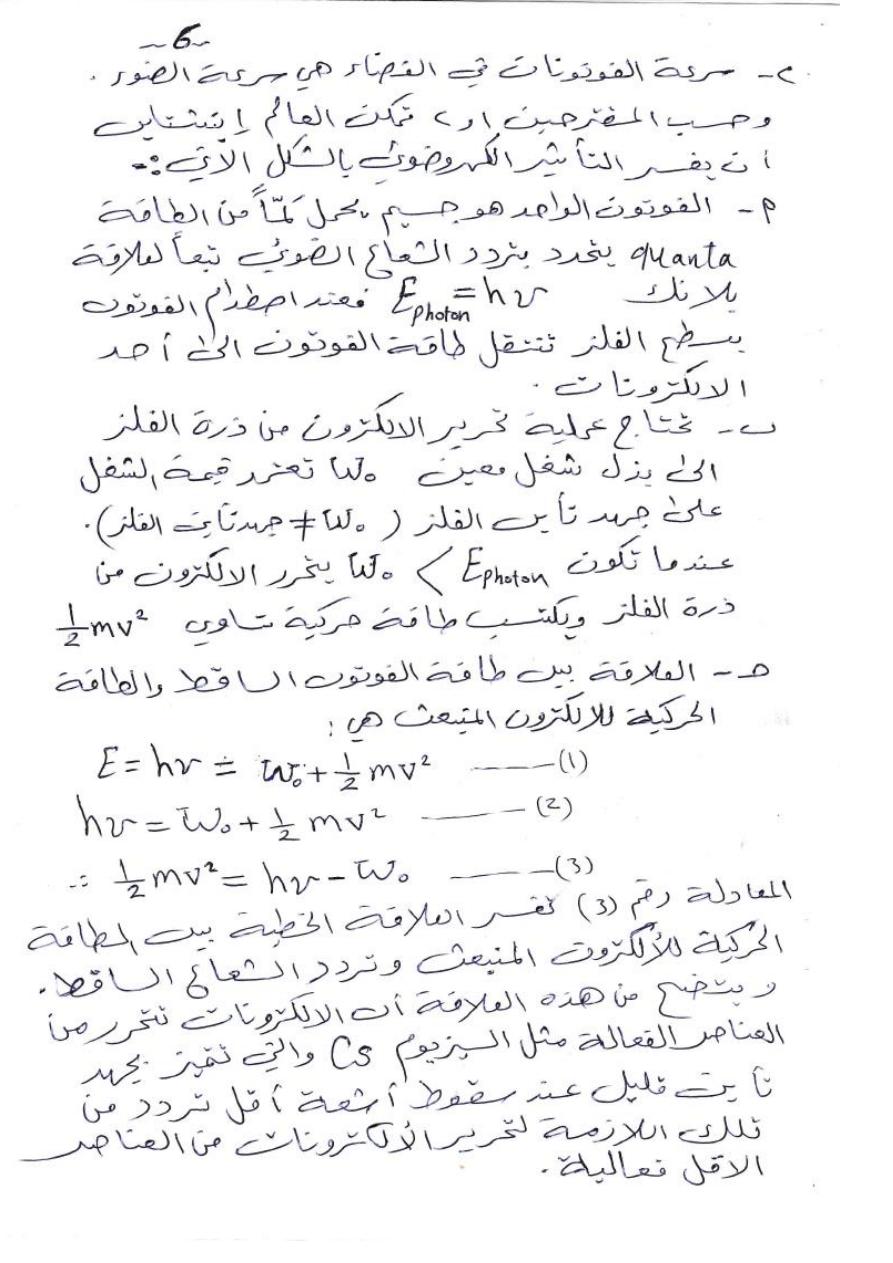 -6-
٢- سرعة الفوتونات في الفضاء هي سرعة الضوء .
وحسب المقترحين ١و٢ تمكن العالم إينشتاين
أن يفسر التأثير الكهروضوئي بالشكل الآتي :-
٩- الفوتون الواحد هو جسيم يحمل كمّاً من الطاقة
quanta يتحدد بتردد الشعاع الضوئي تبعاً لعلاقة
بلانك Ephoton = hν فعند اصطدام الفوتون
بسطح الفلز تنتقل طاقة الفوتون الى أحد
الالكترونات .
ب- تحتاج عملية تحرير الالكترون من ذرة الفلز
الى بذل شغل معين W₀ تعتمد قيمة الشغل
على جهد تأين الفلز ( W₀ ≠ جهد تأين الفلز ) .
عندما تكون Ephoton > W₀ يتحرر الالكترون من
ذرة الفلز ويكتسب طاقة حركية تساوي ½mv²
حـ- العلاقة بين طاقة الفوتون الساقط والطاقة
الحركية للالكترون المنبعث هي :
E = hν = W₀ + ½ mv² ——— (1)
hν = W₀ + ½ mv² ——— (2)
∴ ½ mv² = hν - W₀ ——— (3)
المعادلة رقم (3) تفسر العلاقة الخطية بين الطاقة
الحركية للألكترون المنبعث وتردد الشعاع الساقط .
ويتضح من هذه العلاقة أن الالكترونات تتحرر من
العناصر الفعالة مثل السيزيوم Cs والتي تتميز بجهد
تأين قليل عند سقوط أشعة أقل تردد من
تلك اللازمة لتحرير الألكترونات من العناصر
الاقل فعالية .